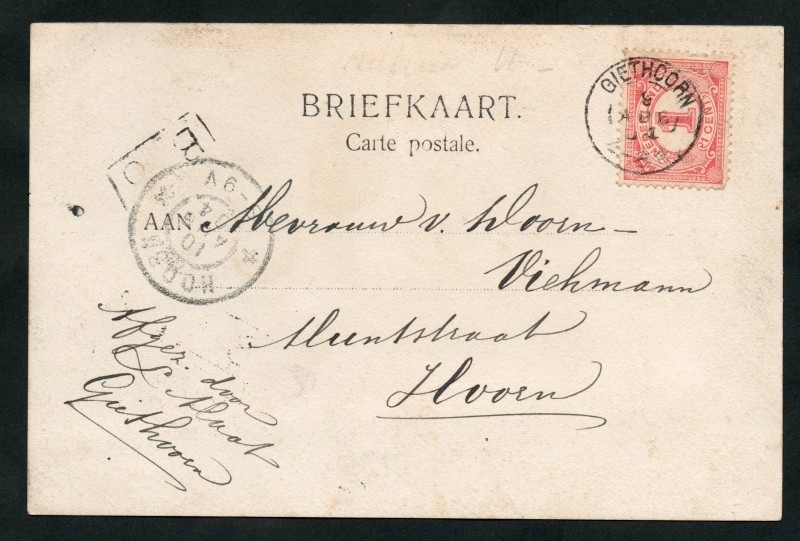 BRIEFKAART.
Carte postale.
GIETHOORN
1
CENT
HOORN
10
6-9V
B
O
AAN Mevrouw v. Doorn-
Viehmann
Muntstraat
Hoorn
Afgez. door
Maat
Giethoorn